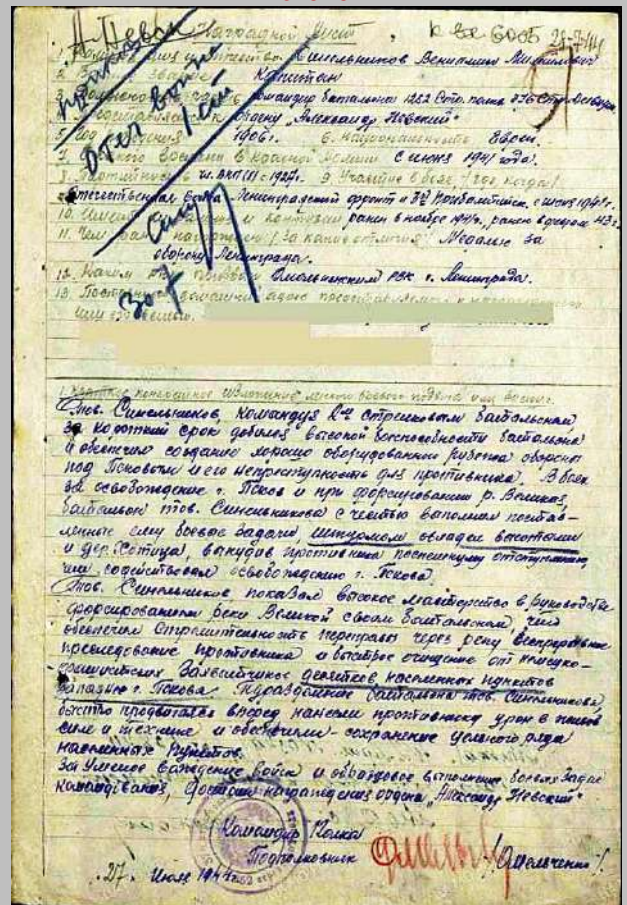 А. Невск
Наградной Лист
28-7-44
1. Фамилия имя отчество Синельников Вениамин
2. звание Капитан
3. Должность, часть Командир батальона 1252 Стр. полка 376 Стр. дивизии
ордену „Александр Невский"
5. Год рождения 1906 г. 6. Национальность Еврей
7. С какого времени в Красной Армии с июня 1941 года.
8. Партийность чл. ВКП(б) с 1927 г. 9. Участие в боях (где когда)
Отечественная война Ленинградский фронт и 3й Прибалтийск. с июня 1941 г.
10. Имеет ли ранения и контузии ранен в ноябре 1941 г., ранен в 43 г.
11. Чем ранее награжден (за какие отличия) Медалью за
оборону Ленинграда.
12. Каким РВК призван Смольнинским РВК г. Ленинграда.
13. Постоянный домашний адрес представляемого к награждению
1. Краткое конкретное изложение личного боевого подвига или заслуг.
Тов. Синельников, командуя 2-м стрелковым батальоном,
за короткий срок добился высокой боеспособности батальона
и обеспечил создание хорошо оборудованного рубежа обороны
под Псковым и его неприступность для противника. В боях
за освобождение г. Псков и при форсировании р. Великая,
батальон тов. Синельникова с честью выполнил постав-
ленные ему боевые задачи, штурмом овладел высотами
и дер. Сотица, вынудив противника поспешному отступлению
чем содействовал освобождению г. Пскова.
Тов. Синельников показал высокое мастерство в руководстве
форсированием реки Великой своим батальоном, чем
обеспечил стремительность переправы через реку беспрерывное
преследование противника и быстрое очищение от немецко-
фашистских захватчиков десятков населенных пунктов
западнее г. Пскова. Подразделение батальона тов. Синельникова,
быстро продвигаясь вперед нанесли противнику урон в живой
силе и технике и обеспечили сохранение целого ряда
населенных пунктов.
За умелое вождение войск и образцовое выполнение боевых задач
командования, достоин награждения ордена „Александр Невский"
Командир Полка
Подполковник /Омельченко/.
„27" Июля 1944 г.